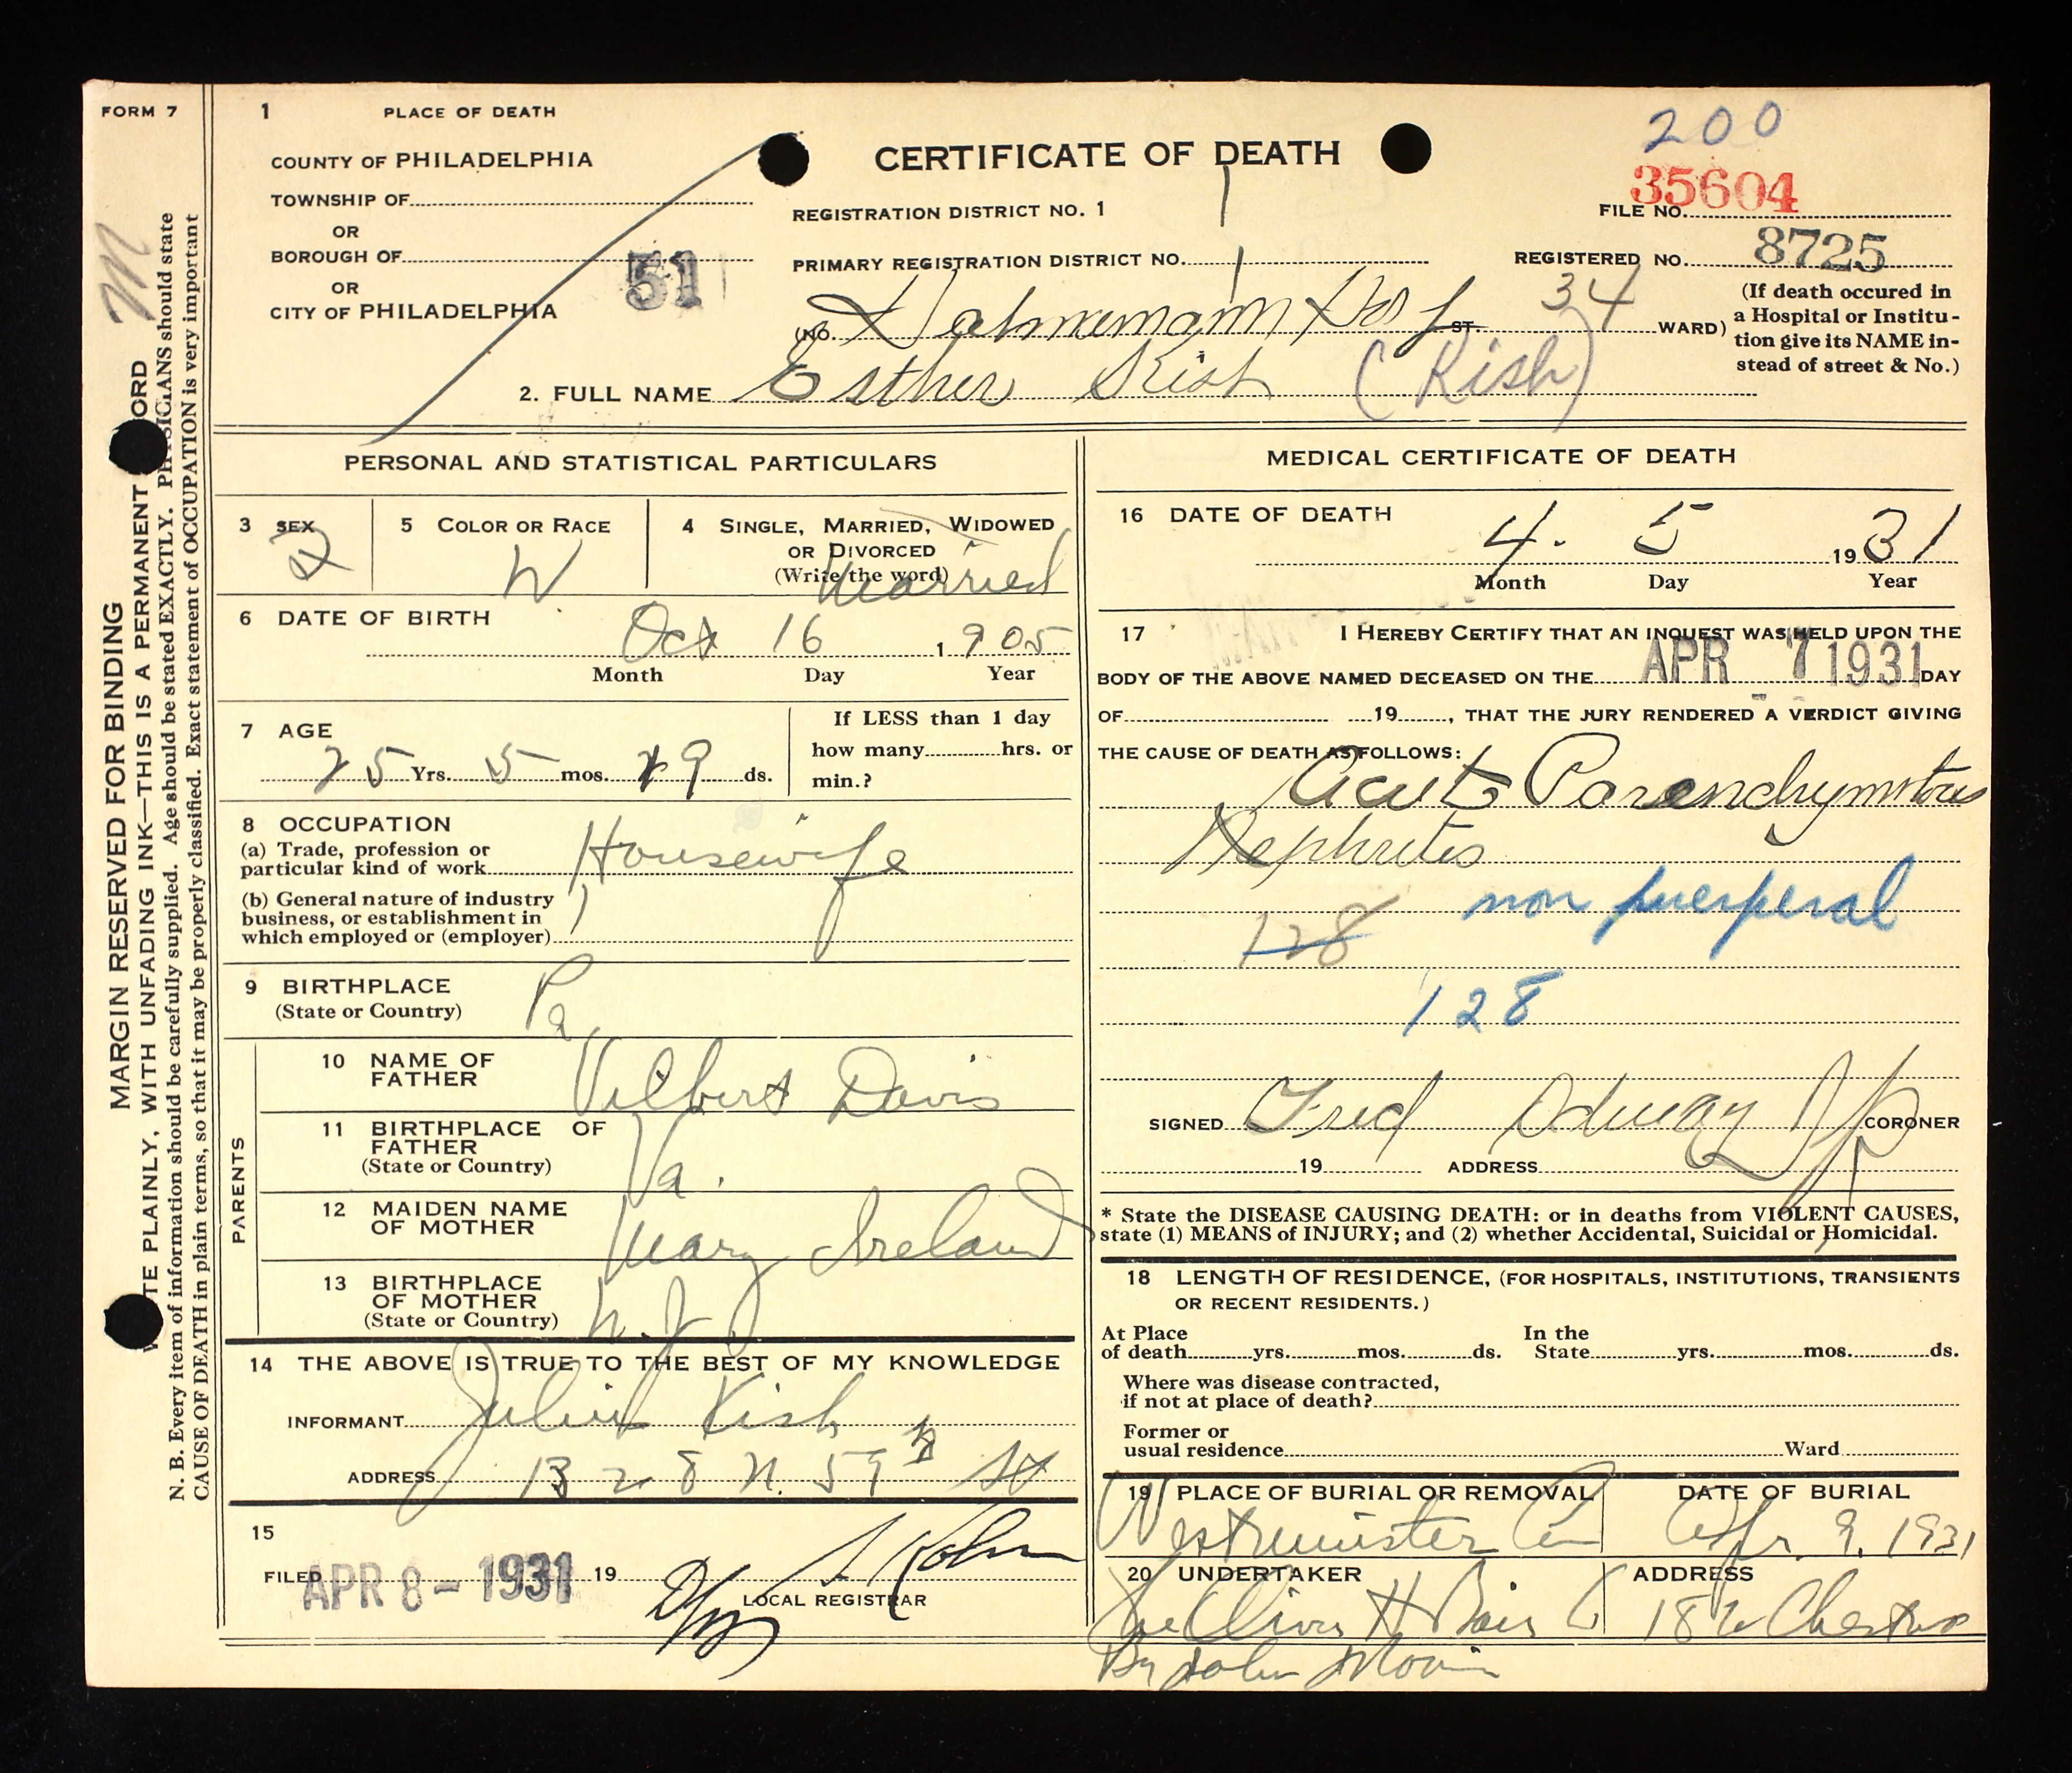 FORM 7
1 PLACE OF DEATH
COUNTY OF PHILADELPHIA
TOWNSHIP OF
OR
BOROUGH OF
OR
CITY OF PHILADELPHIA
51
CERTIFICATE OF DEATH
REGISTRATION DISTRICT NO. 1
PRIMARY REGISTRATION DISTRICT NO. 1
200
35604
FILE NO.
REGISTERED NO. 8725
(NO. Hahnemann Hosp ST. 34 WARD)
(If death occured in
a Hospital or Institu-
tion give its NAME in-
stead of street & No.)
2. FULL NAME Esther Kish (Kish)
MARGIN RESERVED FOR BINDING
TE PLAINLY, WITH UNFADING INK—THIS IS A PERMANENT ORD
N. B. Every item of information should be carefully supplied. Age should be stated EXACTLY. PHYSICIANS should state
CAUSE OF DEATH in plain terms, so that it may be properly classified. Exact statement of OCCUPATION is very important
PERSONAL AND STATISTICAL PARTICULARS
3 SEX
5 COLOR OR RACE
W
4 SINGLE, MARRIED, WIDOWED
OR DIVORCED
(Write the word)
Married
6 DATE OF BIRTH
Oct 16 1905
Month Day Year
7 AGE
25 Yrs. 5 mos. 19 ds.
If LESS than 1 day
how many hrs. or
min.?
8 OCCUPATION
(a) Trade, profession or
particular kind of work Housewife
(b) General nature of industry
business, or establishment in
which employed or (employer)
9 BIRTHPLACE
(State or Country)
Pa
PARENTS
10 NAME OF
FATHER
Vilbert Davis
11 BIRTHPLACE OF
FATHER
(State or Country)
Va.
12 MAIDEN NAME
OF MOTHER
Mary Ireland
13 BIRTHPLACE
OF MOTHER
(State or Country)
N. J.
14 THE ABOVE IS TRUE TO THE BEST OF MY KNOWLEDGE
INFORMANT Julius Kish
ADDRESS 1328 N. 59 St
15
FILED APR 8 - 1931 19
LOCAL REGISTRAR
MEDICAL CERTIFICATE OF DEATH
16 DATE OF DEATH
4. 5 1931
Month Day Year
17 I HEREBY CERTIFY THAT AN INQUEST WAS HELD UPON THE
BODY OF THE ABOVE NAMED DECEASED ON THE APR 7 1931 DAY
OF 19, THAT THE JURY RENDERED A VERDICT GIVING
THE CAUSE OF DEATH AS FOLLOWS:
Acute Parenchymatous
Nephritis
non puerperal
128
128
SIGNED Fred CORONER
19 ADDRESS
* State the DISEASE CAUSING DEATH: or in deaths from VIOLENT CAUSES,
state (1) MEANS of INJURY; and (2) whether Accidental, Suicidal or Homicidal.
18 LENGTH OF RESIDENCE, (FOR HOSPITALS, INSTITUTIONS, TRANSIENTS
OR RECENT RESIDENTS.)
At Place
of death yrs. mos. ds.
In the
State yrs. mos. ds.
Where was disease contracted,
if not at place of death?
Former or
usual residence Ward
19 PLACE OF BURIAL OR REMOVAL
Westminster Cem
DATE OF BURIAL
Apr. 9. 1931
20 UNDERTAKER
The Oliver H Bair Co
ADDRESS
By John